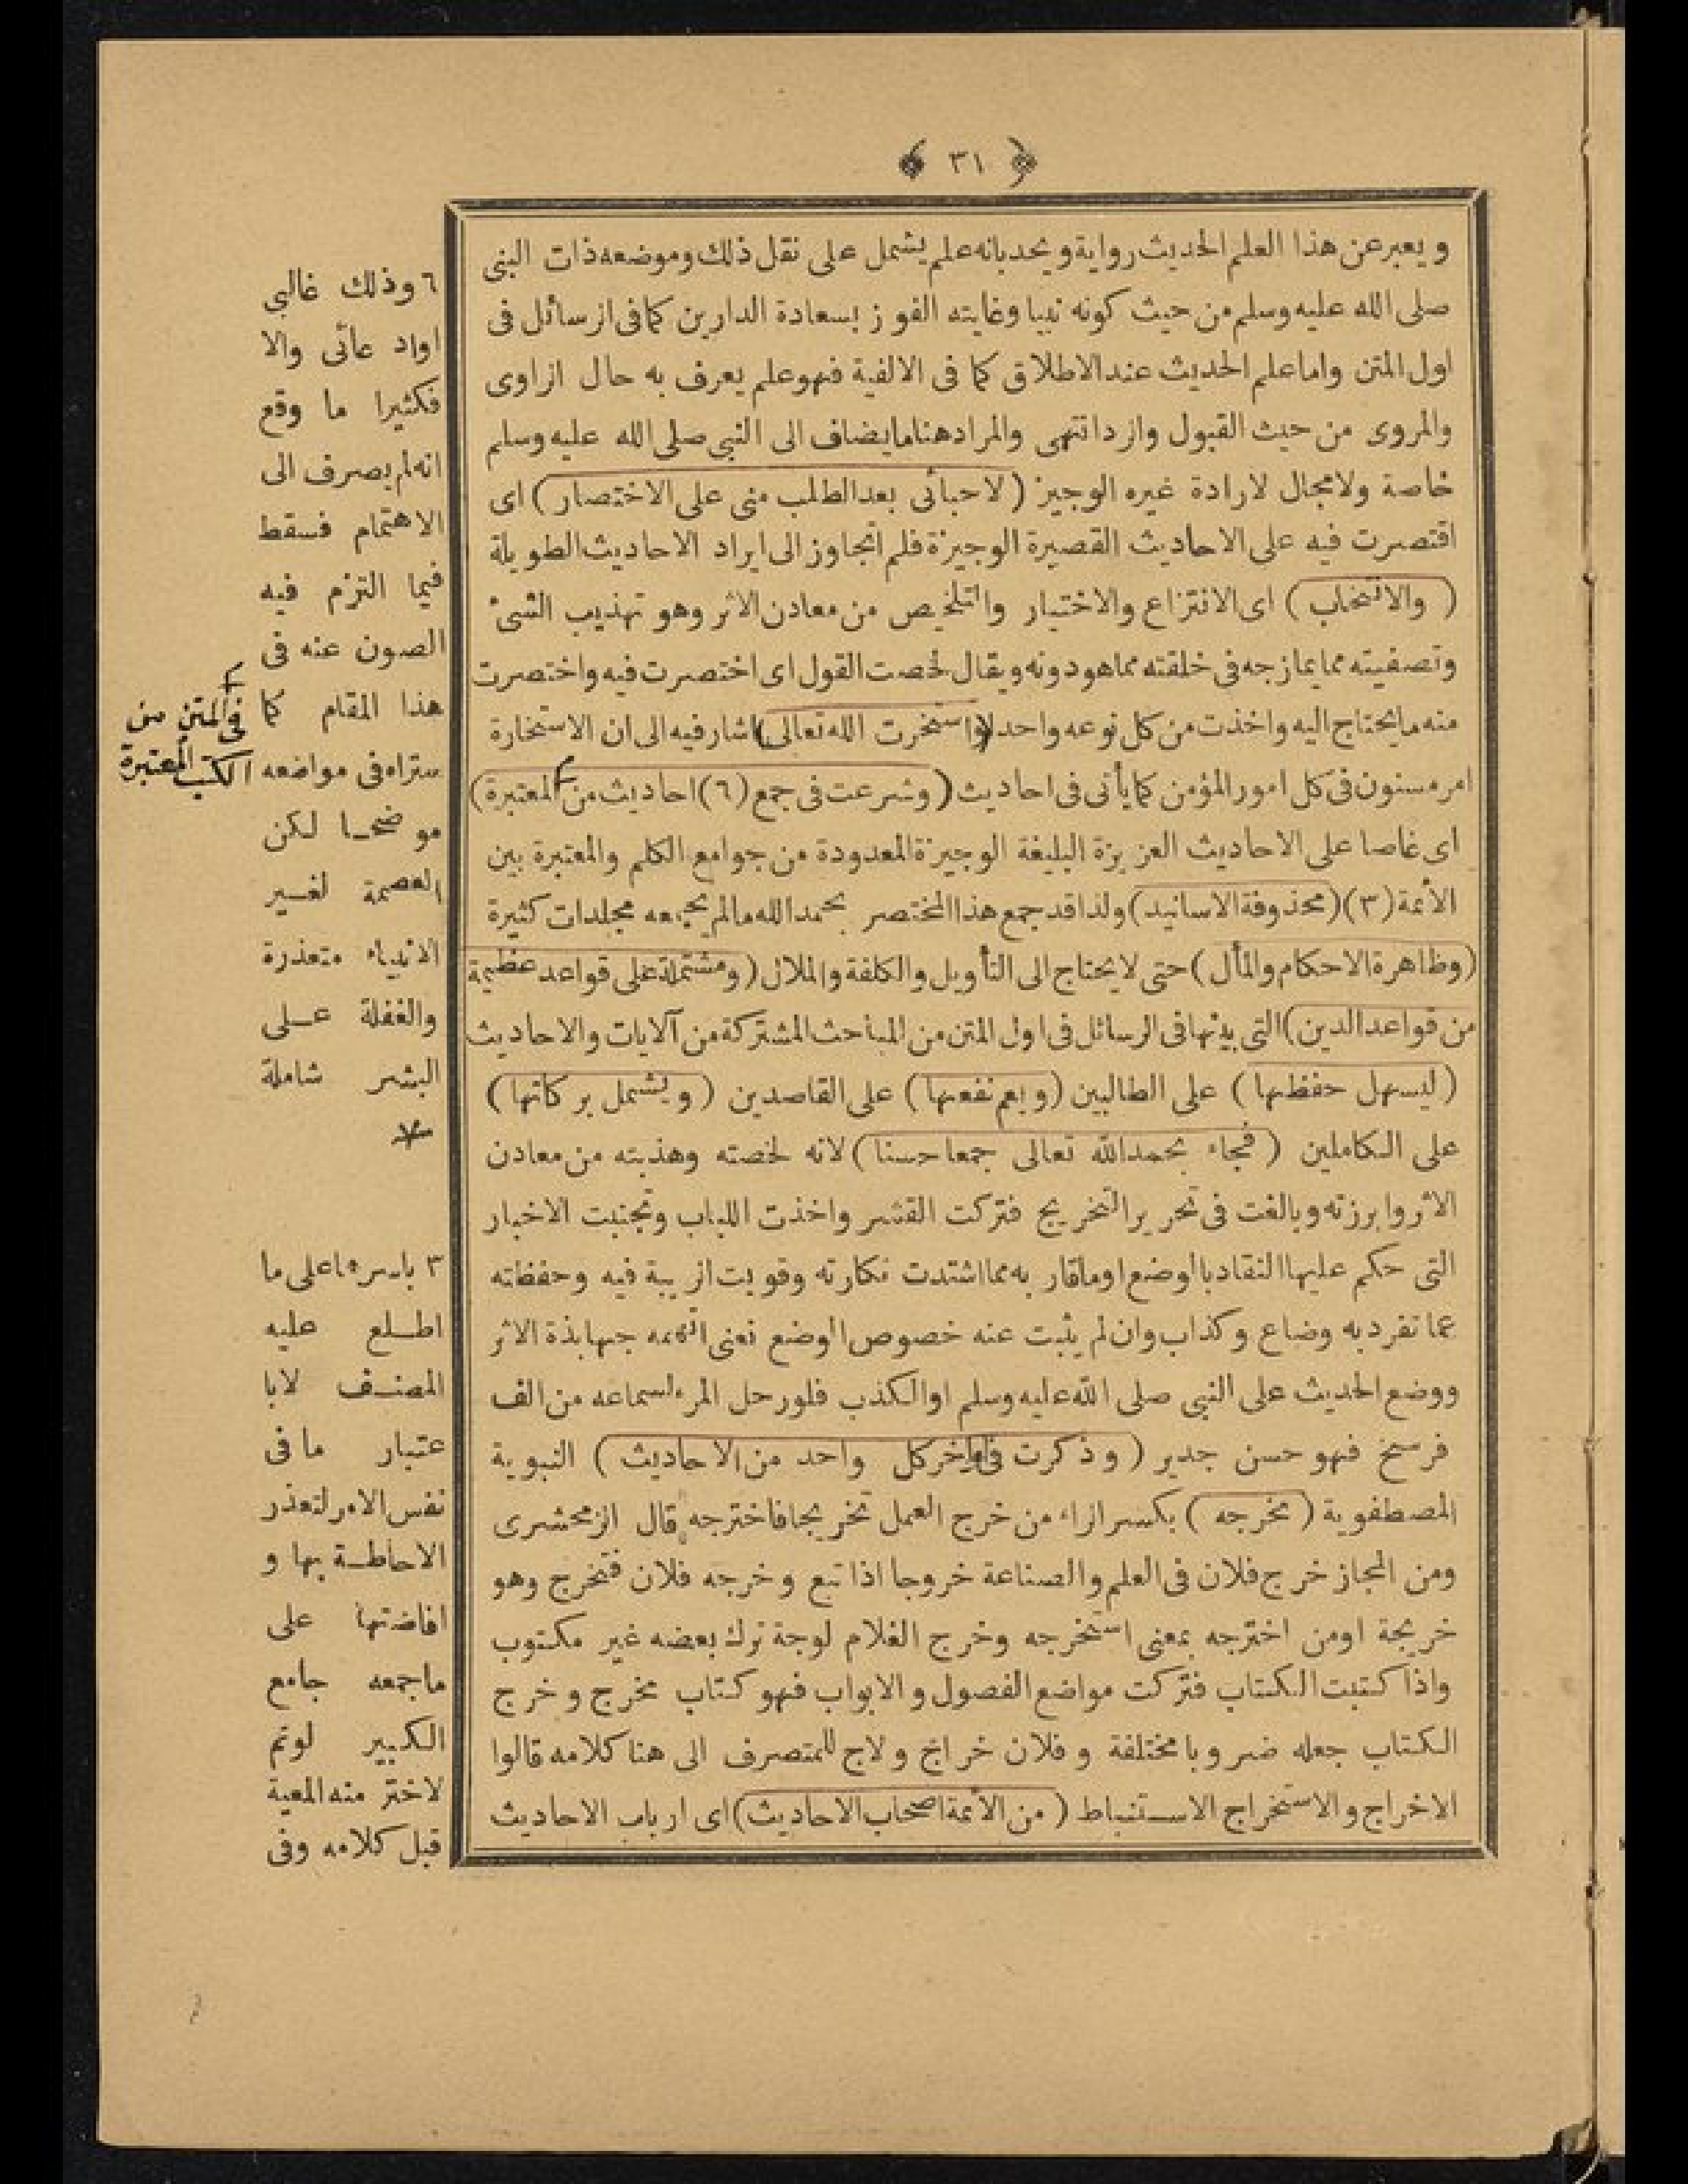 ﴿ ٣١ ﴾
ويعبر عن هذا العلم الحديث رواية ويحد بانه علم يشمل على نقل ذلك وموضعه ذات النبى
صلى الله عليه وسلم من حيث كونه نبيا وغايته الفوز بسعادة الدارين كما فى الرسائل فى
اول المتن واما علم الحديث عند الاطلاق كما فى الالفية فهو علم يعرف به حال الراوى
والمروى من حيث القبول والرد انتهى والمراد هنا ما يضاف الى النبى صلى الله عليه وسلم
خاصة ولا مجال لارادة غيره الوجيز (لاحبائى بعد الطلب منى على الاختصار) اى
اقتصرت فيه على الاحاديث القصيرة الوجيزة فلم اتجاوز الى ايراد الاحاديث الطويلة
(والانتخاب) اى الانتزاع والاختيار والتلخيص من معادن الاثر وهو تهذيب الشئ
وتصفيته مما يمازجه فى خلقته مما هو دونه ويقال لخصت القول اى اختصرت فيه واختصرت
منه ما يحتاج اليه واخذت من كل نوعه واحدا (واستخرت الله تعالى) اشار فيه الى ان الاستخارة
امر مسنون فى كل امور المؤمن كما يأتى فى احاديث (وشرعت فى جمع (٦) احاديث من المعتبرة)
اى غاصا على الاحاديث العزيزة البليغة الوجيزة المعدودة من جوامع الكلم والمعتبرة بين
الأئمة (٣) (محذوفة الاسانيد) ولذا قد جمع هذا المختصر بحمد الله مالم يجمعه مجلدات كثيرة
(وظاهرة الاحكام والمأل) حتى لا يحتاج الى التأويل والكلفة والملال (ومشتملة على قواعد عظيمة
من قواعد الدين) التى بينتها فى الرسائل فى اول المتن من المباحث المشتركة من آلايات والاحاديث
(ليسهل حفظها) على الطالبين (ويعم نفعها) على القاصدين (ويشمل بركاتها)
على الكاملين (فجاء بحمد الله تعالى جمعا حسنا) لانه لخصته وهذبته من معادن
الاثر وابرزته وبالغت فى تحرير التخريج فتركت القشر واخذت اللباب وتجنبت الاخبار
التى حكم عليها النقاد بالوضع او ماقار به مما اشتدت نكارته وقويت الريبة فيه وحفظته
عما تفرد به وضاع وكذاب وان لم يثبت عنه خصوص الوضع نعنى اتهمه جهابذة الاثر
ووضع الحديث على النبى صلى الله عليه وسلم او الكذب فلو رحل المرء لسماعه من الف
فرسخ فهو حسن جدير (وذكرت فى اخر كل واحد من الاحاديث) النبوية
المصطفوية (مخرجه) بكسر الراء من خرج العمل تخريجا فاخترجه قال الزمخشرى
ومن المجاز خرج فلان فى العلم والصناعة خروجا اذا تبع وخرجه فلان فتخرج وهو
خريجة او من اخترجه بمعنى استخرجه وخرج الغلام لوحة ترك بعضه غير مكتوب
واذا كتبت الكتاب فتركت مواضع الفصول والابواب فهو كتاب مخرج وخرج
الكتاب جعله ضروبا مختلفة وفلان خراج ولاج للمتصرف الى هنا كلامه قالوا
الاخراج والاستخراج الاستنباط (من الأئمة اصحاب الاحاديث) اى ارباب الاحاديث
٦ وذلك غالبي
اواد عائى والا
فكثيرا ما وقع
انه لم يصرف الى
الاهتمام فسقط
فيما التزم فيه
الصون عنه فى
هذا المقام كما
ستراه فى مواضعه
موضحا لكن
العصمة لغير
الانبياء متعذرة
والغفلة على
البشر شاملة
فى المتن من
الكتب المعتبرة
٣ باسرها على ما
اطلع عليه
المصنف لابا
عتبار ما فى
نفس الامر لتعذر
الاحاطة بها و
افاضتها على
ما جمعه جامع
الكبير لوتم
لاختر منه المعية
قبل كلامه وفى